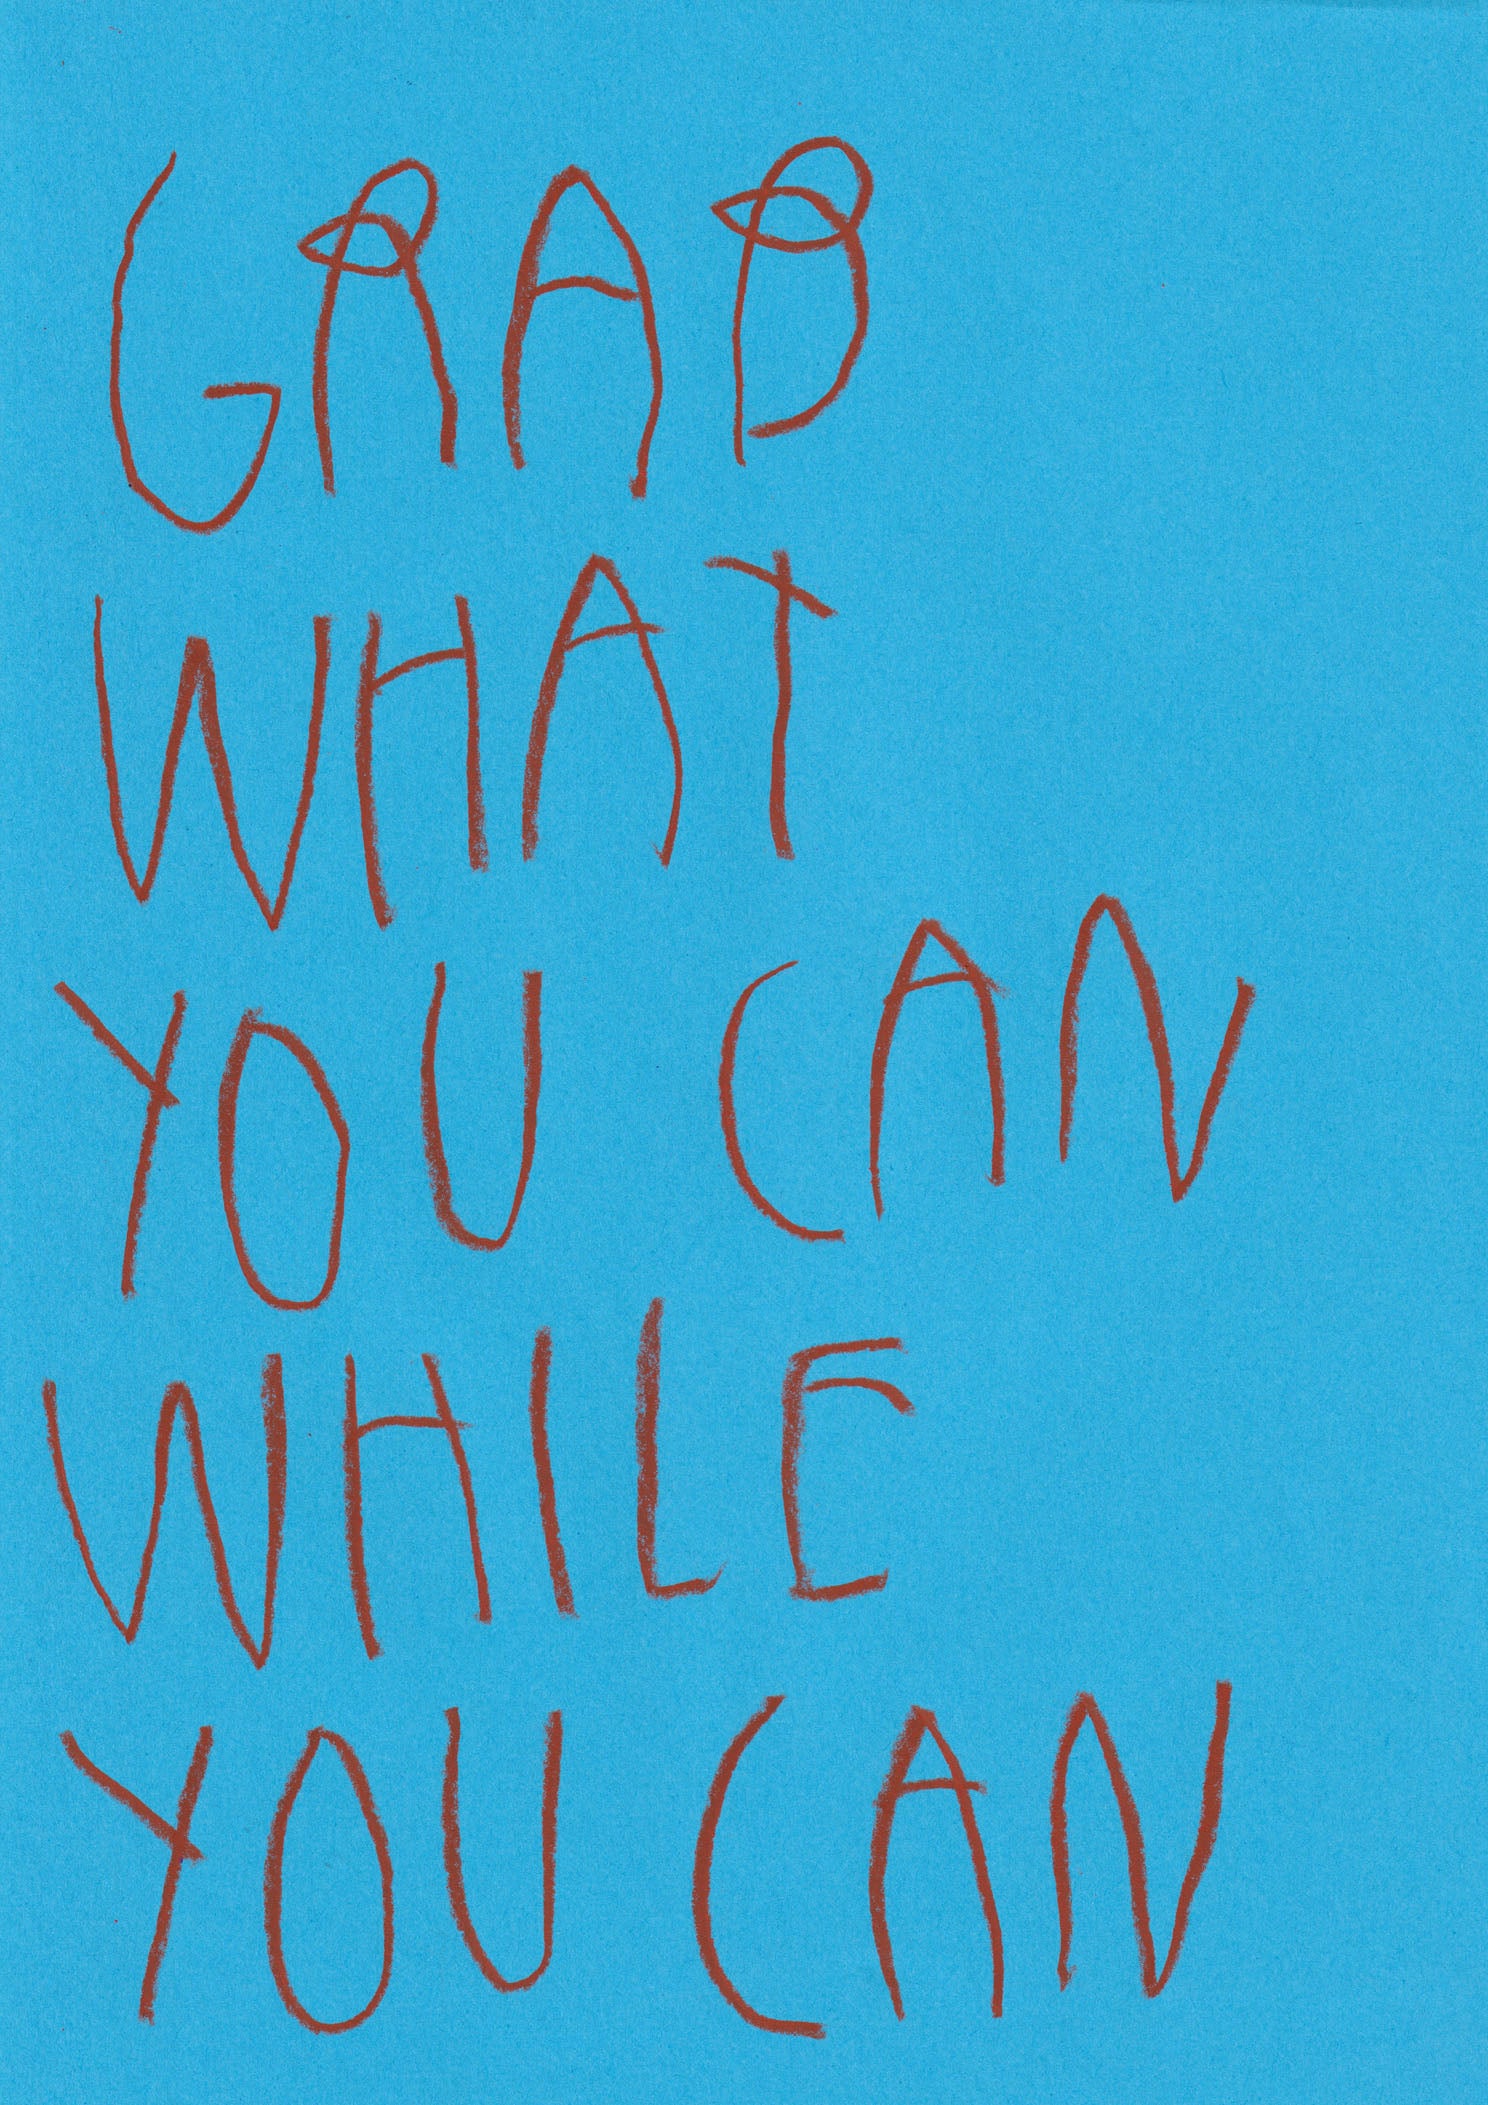 GRAB
WHAT
YOU CAN
WHILE
YOU CAN